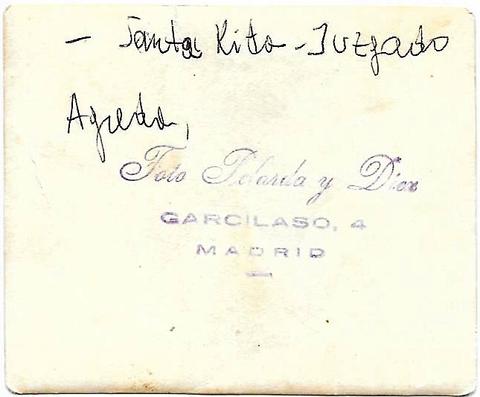 - Santa Rita - Juzgado
Agreda,
Foto y Diez
GARCILASO, 4
MADRID